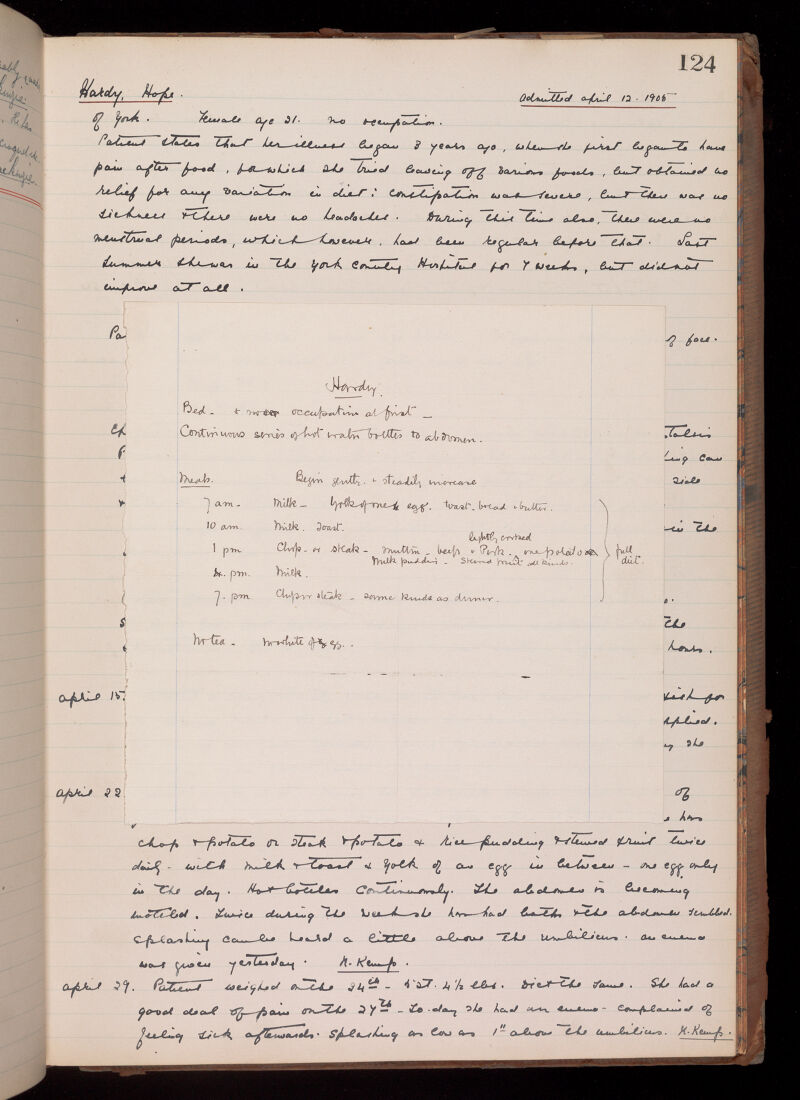 124
Hardy, Hope. Admitted april 12. 1905
of York. Female age 21. no occupation.
Patient states that her illness began 3 years ago, when she first began to have
pain after food, for which she tried leaving off various foods, but obtained no
relief for any variation in diet: constipation was severe, but there was no
sickness & there were no headaches. During this time also, there were no
menstrual periods, which however, had been regular before that. Last
summer she was in the York County Hospital for 7 weeks, but did not
improve at all.
Pa
of face.
Hardy.
Bed. & no occupation at first –
Continuous series of hot water bottles to abdomen.
Meals. Begin gently & steadily increase
7 am. Milk – Yolk of one egg. toast, bread & butter.
10 am. Milk. Toast.
lightly cooked
1 pm Chop or steak – mutton – beef & Pork. one potato
Milk pudding – stewed fruit all kinds.
full diet.
pm. Milk.
7. pm Chop or steak – same kinds as dinner.
No tea – no white of egg.
the
hours.
april 15.
she
april 22
of
chop & potato or steak & potato & rice pudding & stewed fruit twice
daily – with milk & toast & yolk of an egg in between – one egg only
in the day. Hot bottles continuously. The abdomen is becoming
mottled. Twice during the week she has had baths & the abdomen scrubbed.
Splashing can be heard a little above the umbilicus. an enema
was given yesterday. N. Kemp.
april 29. Patient weighed on the 24th – 5 st. 4½ lbs. Diet the same. She had a
good deal of pain on the 27th – To-day she had an enema – complained of
feeling sick afterwards. Splashing as low as 1" above the umbilicus. N. Kemp.